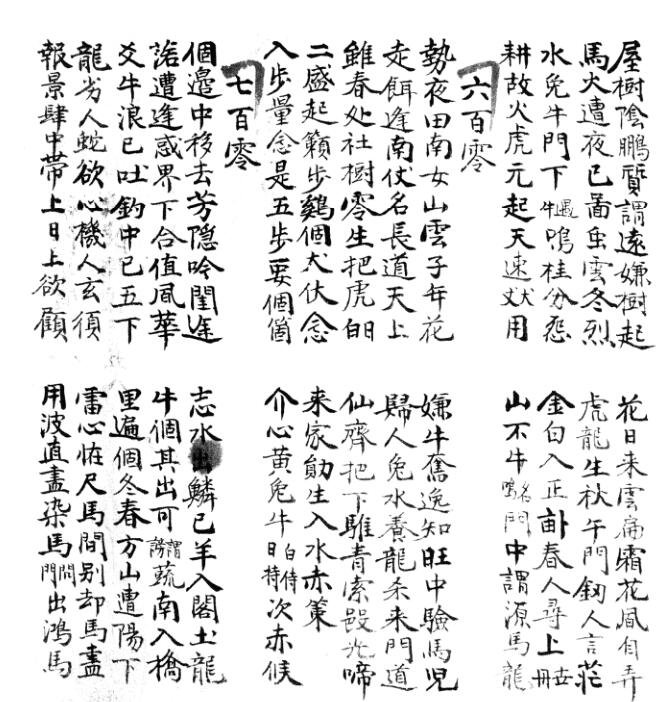 屋樹陰鵬質謂遠嫌樹起
馬火遭夜已啚虫雲冬烈
水兔牛門下遇牛鳴桂分怨
耕故火虎元起天速用
花日来雲霜花凨自弄
虎龍生秋午門釼人言茫
金白入正卦春人尋上
山不牛名鳴門中謂源馬龍
六百零
勢夜田南女山雲子年花
走餌逢南仗名長道天上
雖春处社樹零生把虎
二盛起籟步鷄個犬伏念
入步量念是五步要個箇
嫌牛奮逸知旺中驗馬児
婦人兔水養龍杀来門道
仙齊把下騅青索光啼
来家勛生入水赤策
介心黄兔牛白侍日持次赤候
七百零
個邊中移去芳隐吟閨逢
詣遭逢惑界下合值凨華
爻牛浪已吐釣中已五下
龍劣人蛇欲心機人玄須
報景肆中帶上日上欲顧
志水出鱗已羊入閣土龍
牛個其出可謂謗蔬南入橋
里遍個冬春方山遭陽下
雷心怪尺馬間别却馬盡
用波直盡染馬問門出鴻馬